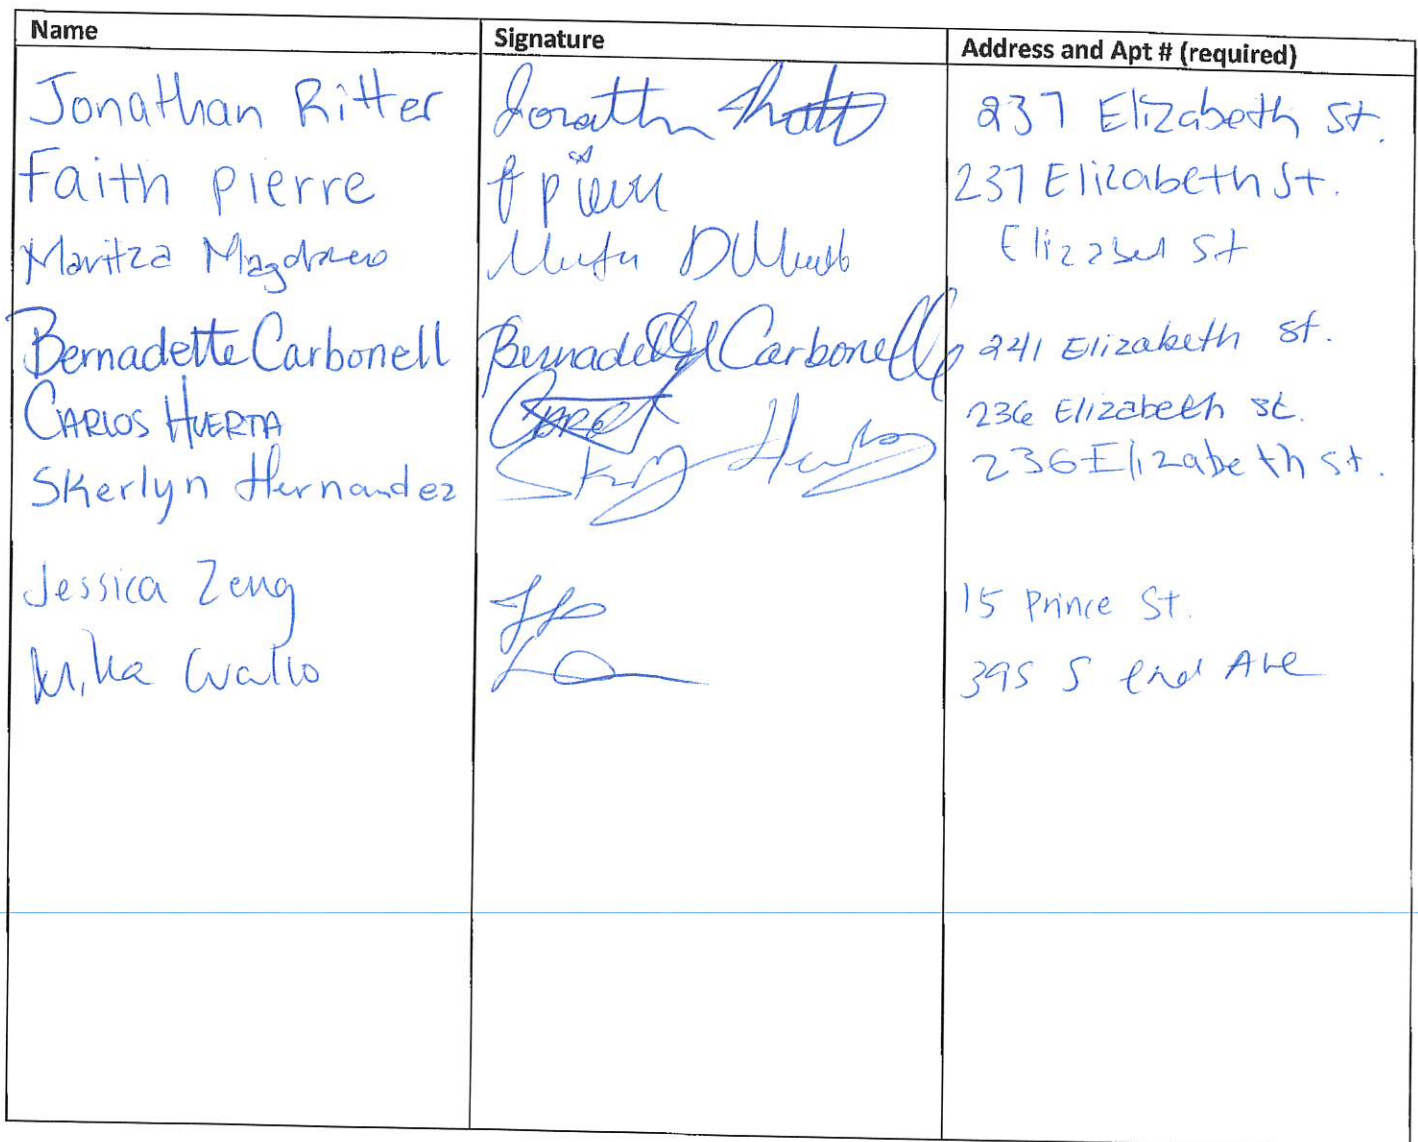 Name Signature Address and Apt # (required)
Jonathan Ritter Jonathan 237 Elizabeth St.
Faith Pierre f pierre 237 Elizabeth St.
Maritza St
Bernadette Carbonell Bernadette Carbonell 241 Elizabeth St.
CARLOS HUERTA 236 Elizabeth St.
Skerlyn Hernandez 236 Elizabeth St.
Jessica Zeng 15 Prince St.
Mika 395 S End Ave